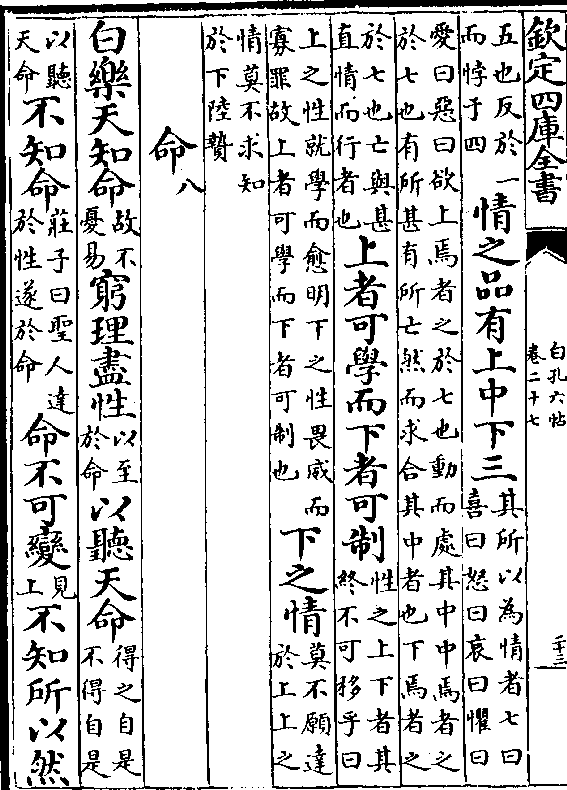 欽定四庫全書
白孔六帖
卷二十七
二十三
五也反於一
而悖于四
情之品有上中下三
其所以為情者七曰
喜曰怒曰哀曰懼曰
愛曰惡曰欲上焉者之於七也動而處其中中焉者之
於七也有所甚有所亡然而求合其中者也下焉者之
於七也亡與甚
直情而行者也
上者可學而下者可制
性之上下者其
終不可移乎曰
上之性就學而愈明下之性畏威而
寡罪故上者可學而下者可制也
下之情
莫不願達
於上上之
情莫不求知
於下陸贄
命八
白樂天知命
故不
憂易
窮理盡性
以至
於命
以聽天命
得之自是
不得自是
以聽
天命
不知命
莊子曰聖人達
於性遂於命
命不可變
見
上
不知所以然